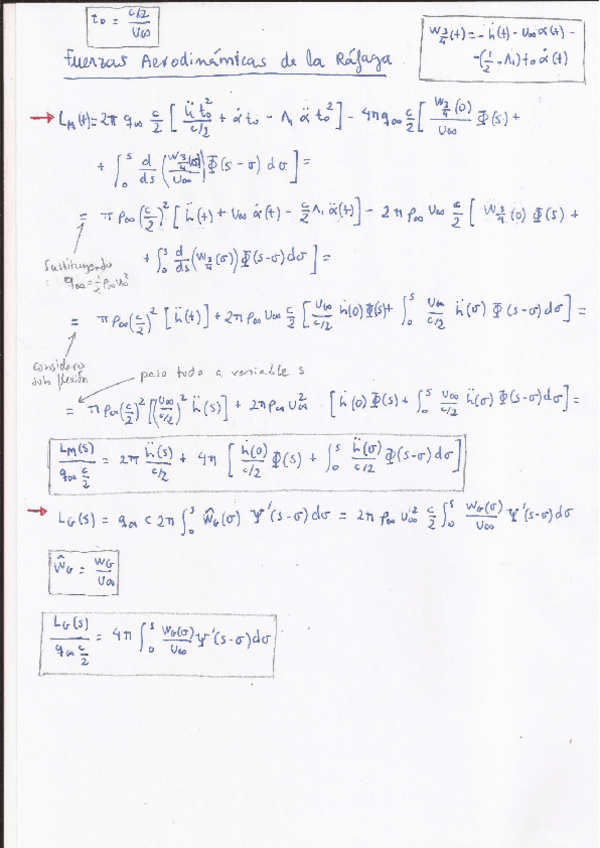 t₀ = (c/2)/U∞
W¾(t) = - ḣ(t) - U∞ α(t) -
-(½ - Λ₁) t₀ α̇(t)
Fuerzas Aerodinámicas de la Ráfaga
→ L_M(t) = 2π q∞ c/2 [ ḧ t₀²/(c/2) + α̇ t₀ - Λ₁ α̈ t₀² ] - 4π q∞ c/2 [ W¾(0)/U∞ Φ(s) +
+ ∫₀ˢ d/ds (W¾(σ)/U∞) Φ(s-σ) dσ ] =
= π ρ∞ (c/2)² [ ḧ(t) + U∞ α̇(t) - c/2 Λ₁ α̈(t) ] - 2π ρ∞ U∞ c/2 [ W¾(0) Φ(s) +
Sustituyendo
q∞ = ½ ρ∞ U∞²
+ ∫₀ˢ d/ds (W¾(σ)) Φ(s-σ) dσ ] =
= π ρ∞ (c/2)² [ ḧ(t) ] + 2π ρ∞ U∞ c/2 [ U∞/(c/2) ḣ(0) Φ(s) + ∫₀ˢ U∞/(c/2) ḧ(σ) Φ(s-σ) dσ ] =
considero
solo flexión
paso todo a variable s
= π ρ∞ (c/2)² [ (U∞/(c/2))² ḧ(s) ] + 2π ρ∞ U∞² [ ḣ(0) Φ(s) + ∫₀ˢ U∞/(c/2) ḧ(σ) Φ(s-σ) dσ ] =
L_M(s)/(q∞ c/2) = 2π ḧ(s)/(c/2) + 4π [ ḣ(0)/(c/2) Φ(s) + ∫₀ˢ ḧ(σ)/(c/2) Φ(s-σ) dσ ]
→ L_G(s) = q∞ c 2π ∫₀ˢ ŵ_G(σ) Ψ'(s-σ) dσ = 2π ρ∞ U∞² c/2 ∫₀ˢ w_G(σ)/U∞ Ψ'(s-σ) dσ
ŵ_G = w_G/U∞
L_G(s)/(q∞ c/2) = 4π ∫₀ˢ w_G(σ)/U∞ Ψ'(s-σ) dσ